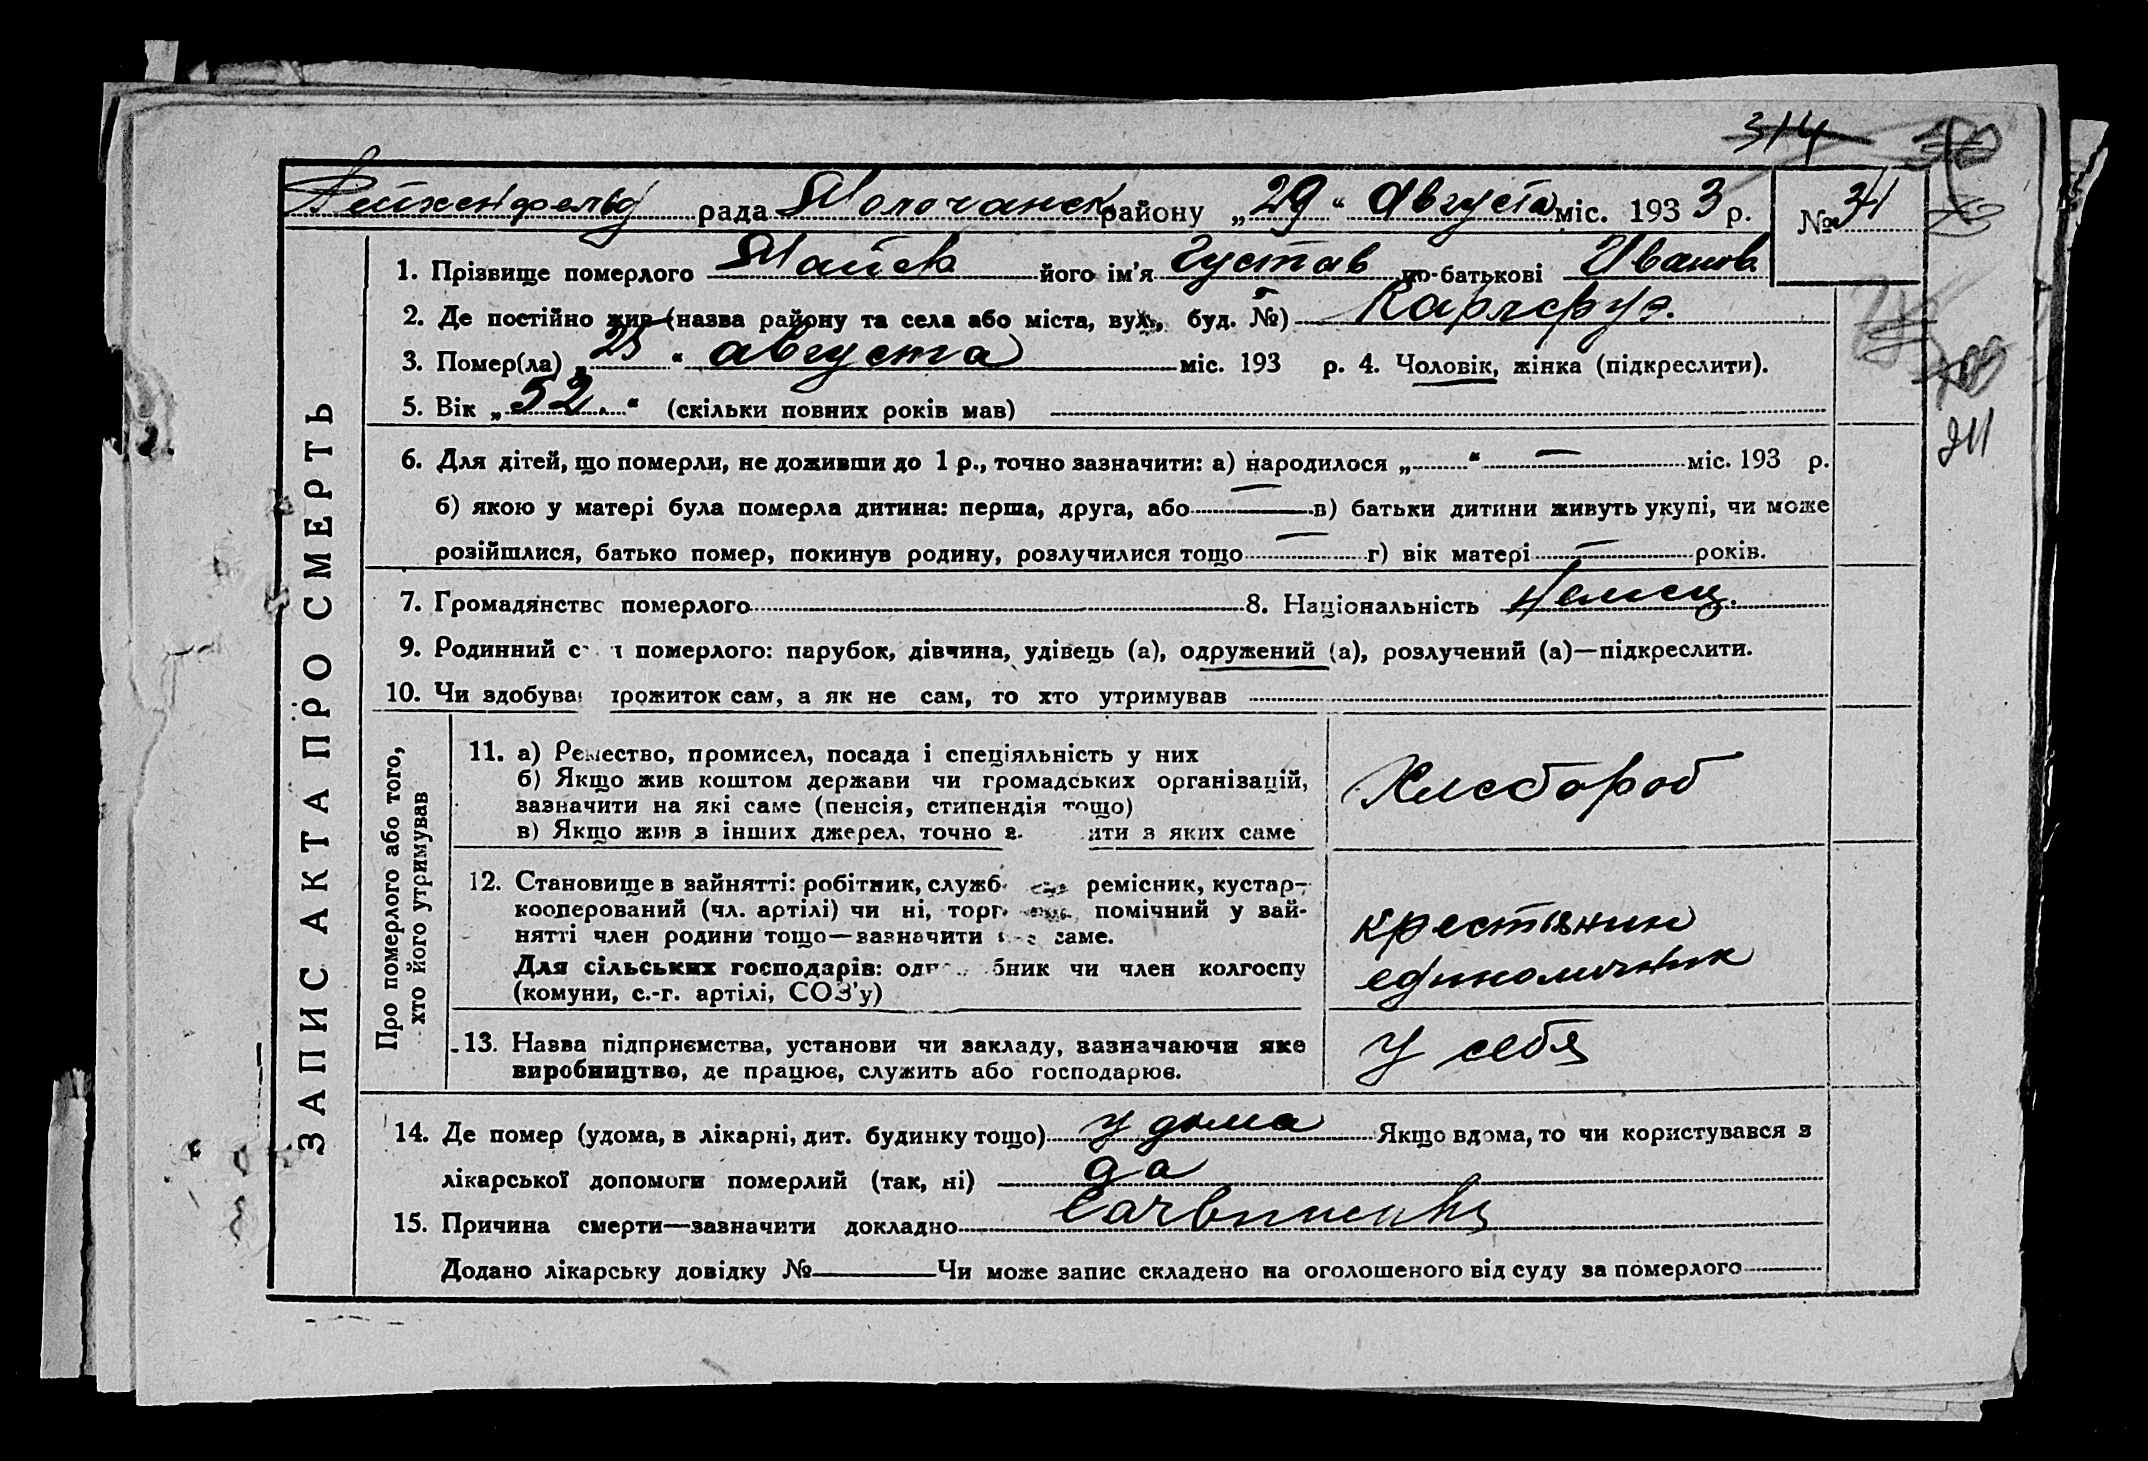 314
Рейхенфельд рада Молочанск району „29“ Августа міс. 1933 р. № 31
1. Прізвище померлого його ім'я Густав по-батькові Иванов
2. Де постійно жив (назва району та села або міста, вул., буд. №) Карлсруэ.
3. Помер(ла) „25“ августа міс. 193 р. 4. Чоловік, жінка (підкреслити).
5. Вік „52“ (скільки повних років мав)
6. Для дітей, що померли, не доживши до 1 р., точно зазначити: а) народилося „ “ — міс. 193 р.
б) якою у матері була померла дитина: перша, друга, або — в) батьки дитини живуть укупі, чи може
розійшлися, батько помер, покинув родину, розлучилися тощо — г) вік матері — років.
7. Громадянство померлого 8. Національність Немец.
9. Родинний померлого: парубок, дівчина, удівець (а), одружений (а), розлучений (а)—підкреслити.
10. Чи здобува прожиток сам, а як не сам, то хто утримував
ЗАПИС АКТА ПРО СМЕРТЬ
Про померлого або того,
хто його утримував
11. а) Ремество, промисел, посада і спеціяльність у них
б) Якщо жив коштом держави чи громадських організацій,
зазначити на які саме (пенсія, стипендія тощо)
в) Якщо жив з інших джерел, точно з яких саме
Хлебороб
12. Становище в зайнятті: робітник, служб ремісник, кустар-
кооперований (чл. артілі) чи ні, торг помічний у зай-
нятті член родини тощо—зазначити саме.
Для сільських господарів: одн бник чи член колгоспу
(комуни, с.-г. артілі, СОЗ'у)
крестьянин
единоличник
13. Назва підприємства, установи чи закладу, зазначаючи яке
виробництво, де працює, служить або господарює.
У себя
14. Де помер (удома, в лікарні, дит. будинку тощо) у дома Якщо вдома, то чи користувався з
лікарської допомоги померлий (так, ні) да
15. Причина смерти—зазначити докладно
Додано лікарську довідку № — Чи може запис складено на оголошеного від суду за померлого